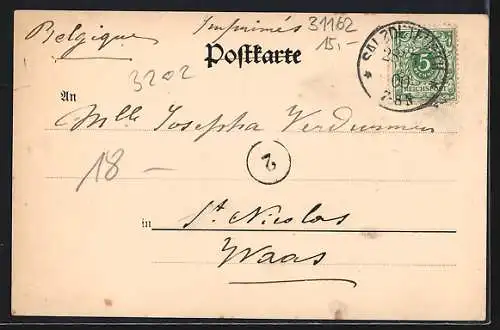 Belgique
Imprimés
31162
15.-
Postkarte
3202
5
REICHSPOST
00
7-8 N
An
Mlle Josepha Verdurmen
18 -
2
in
St. Nicolas
Waas